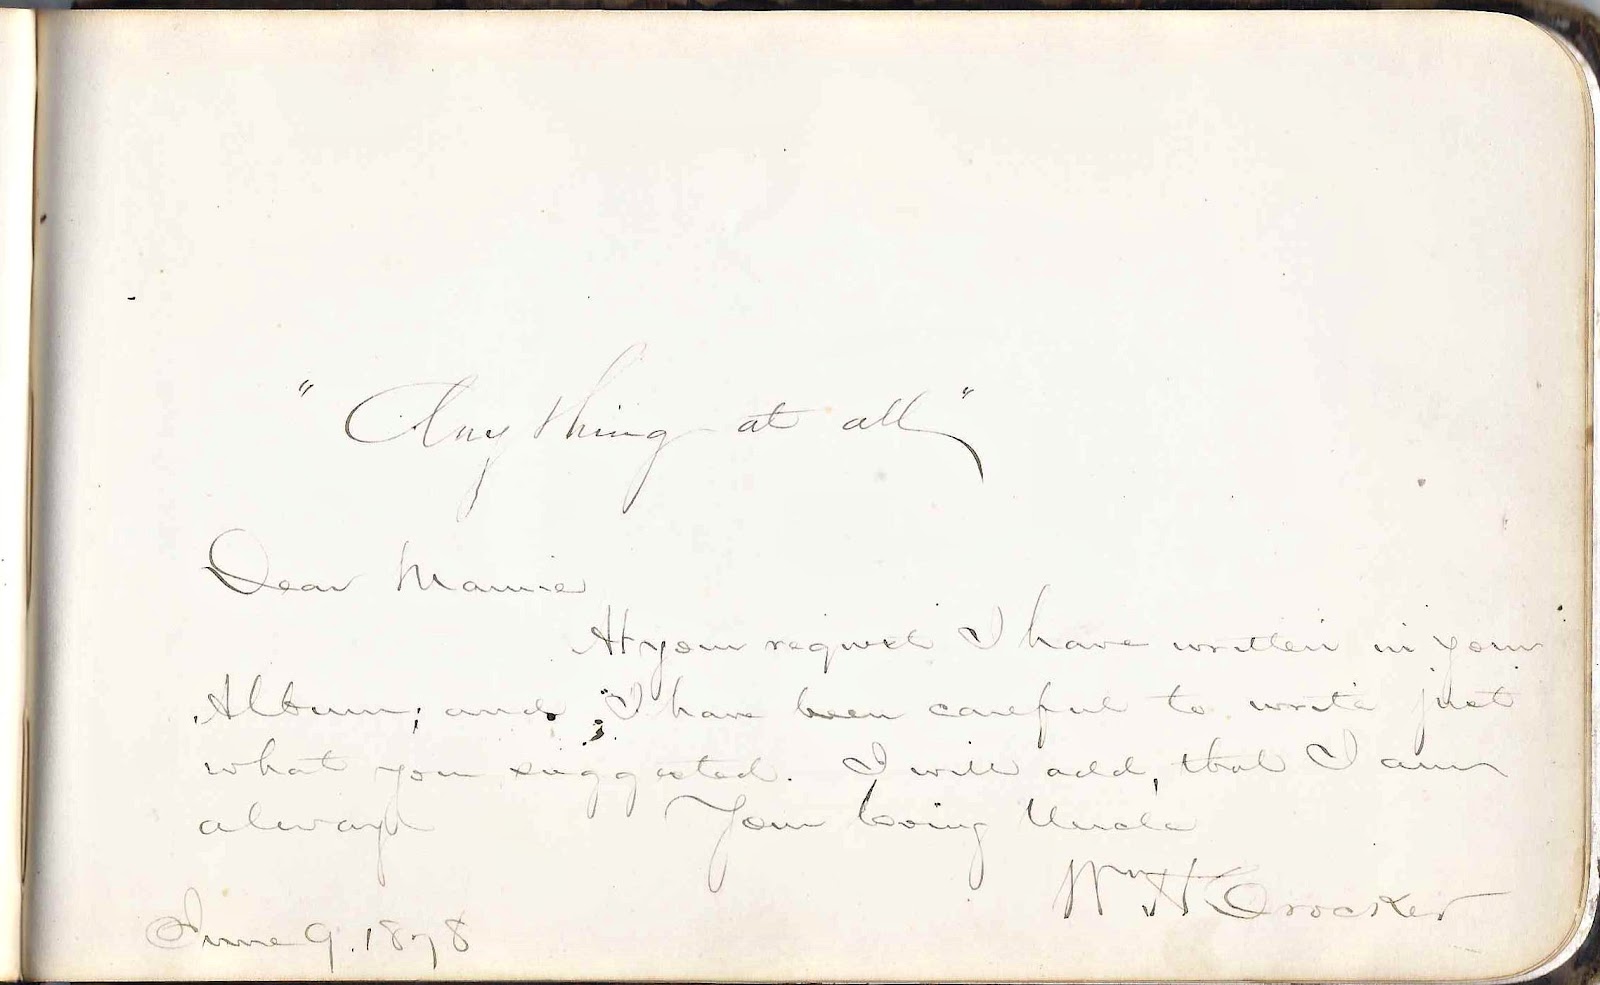 "Any thing at all"
Dear Mamie
At your request I have written in your
Album; and I have been careful to write just
what you suggested. I will add, that I am
always Your loving Uncle
Wm H Crocker
June 9. 1878